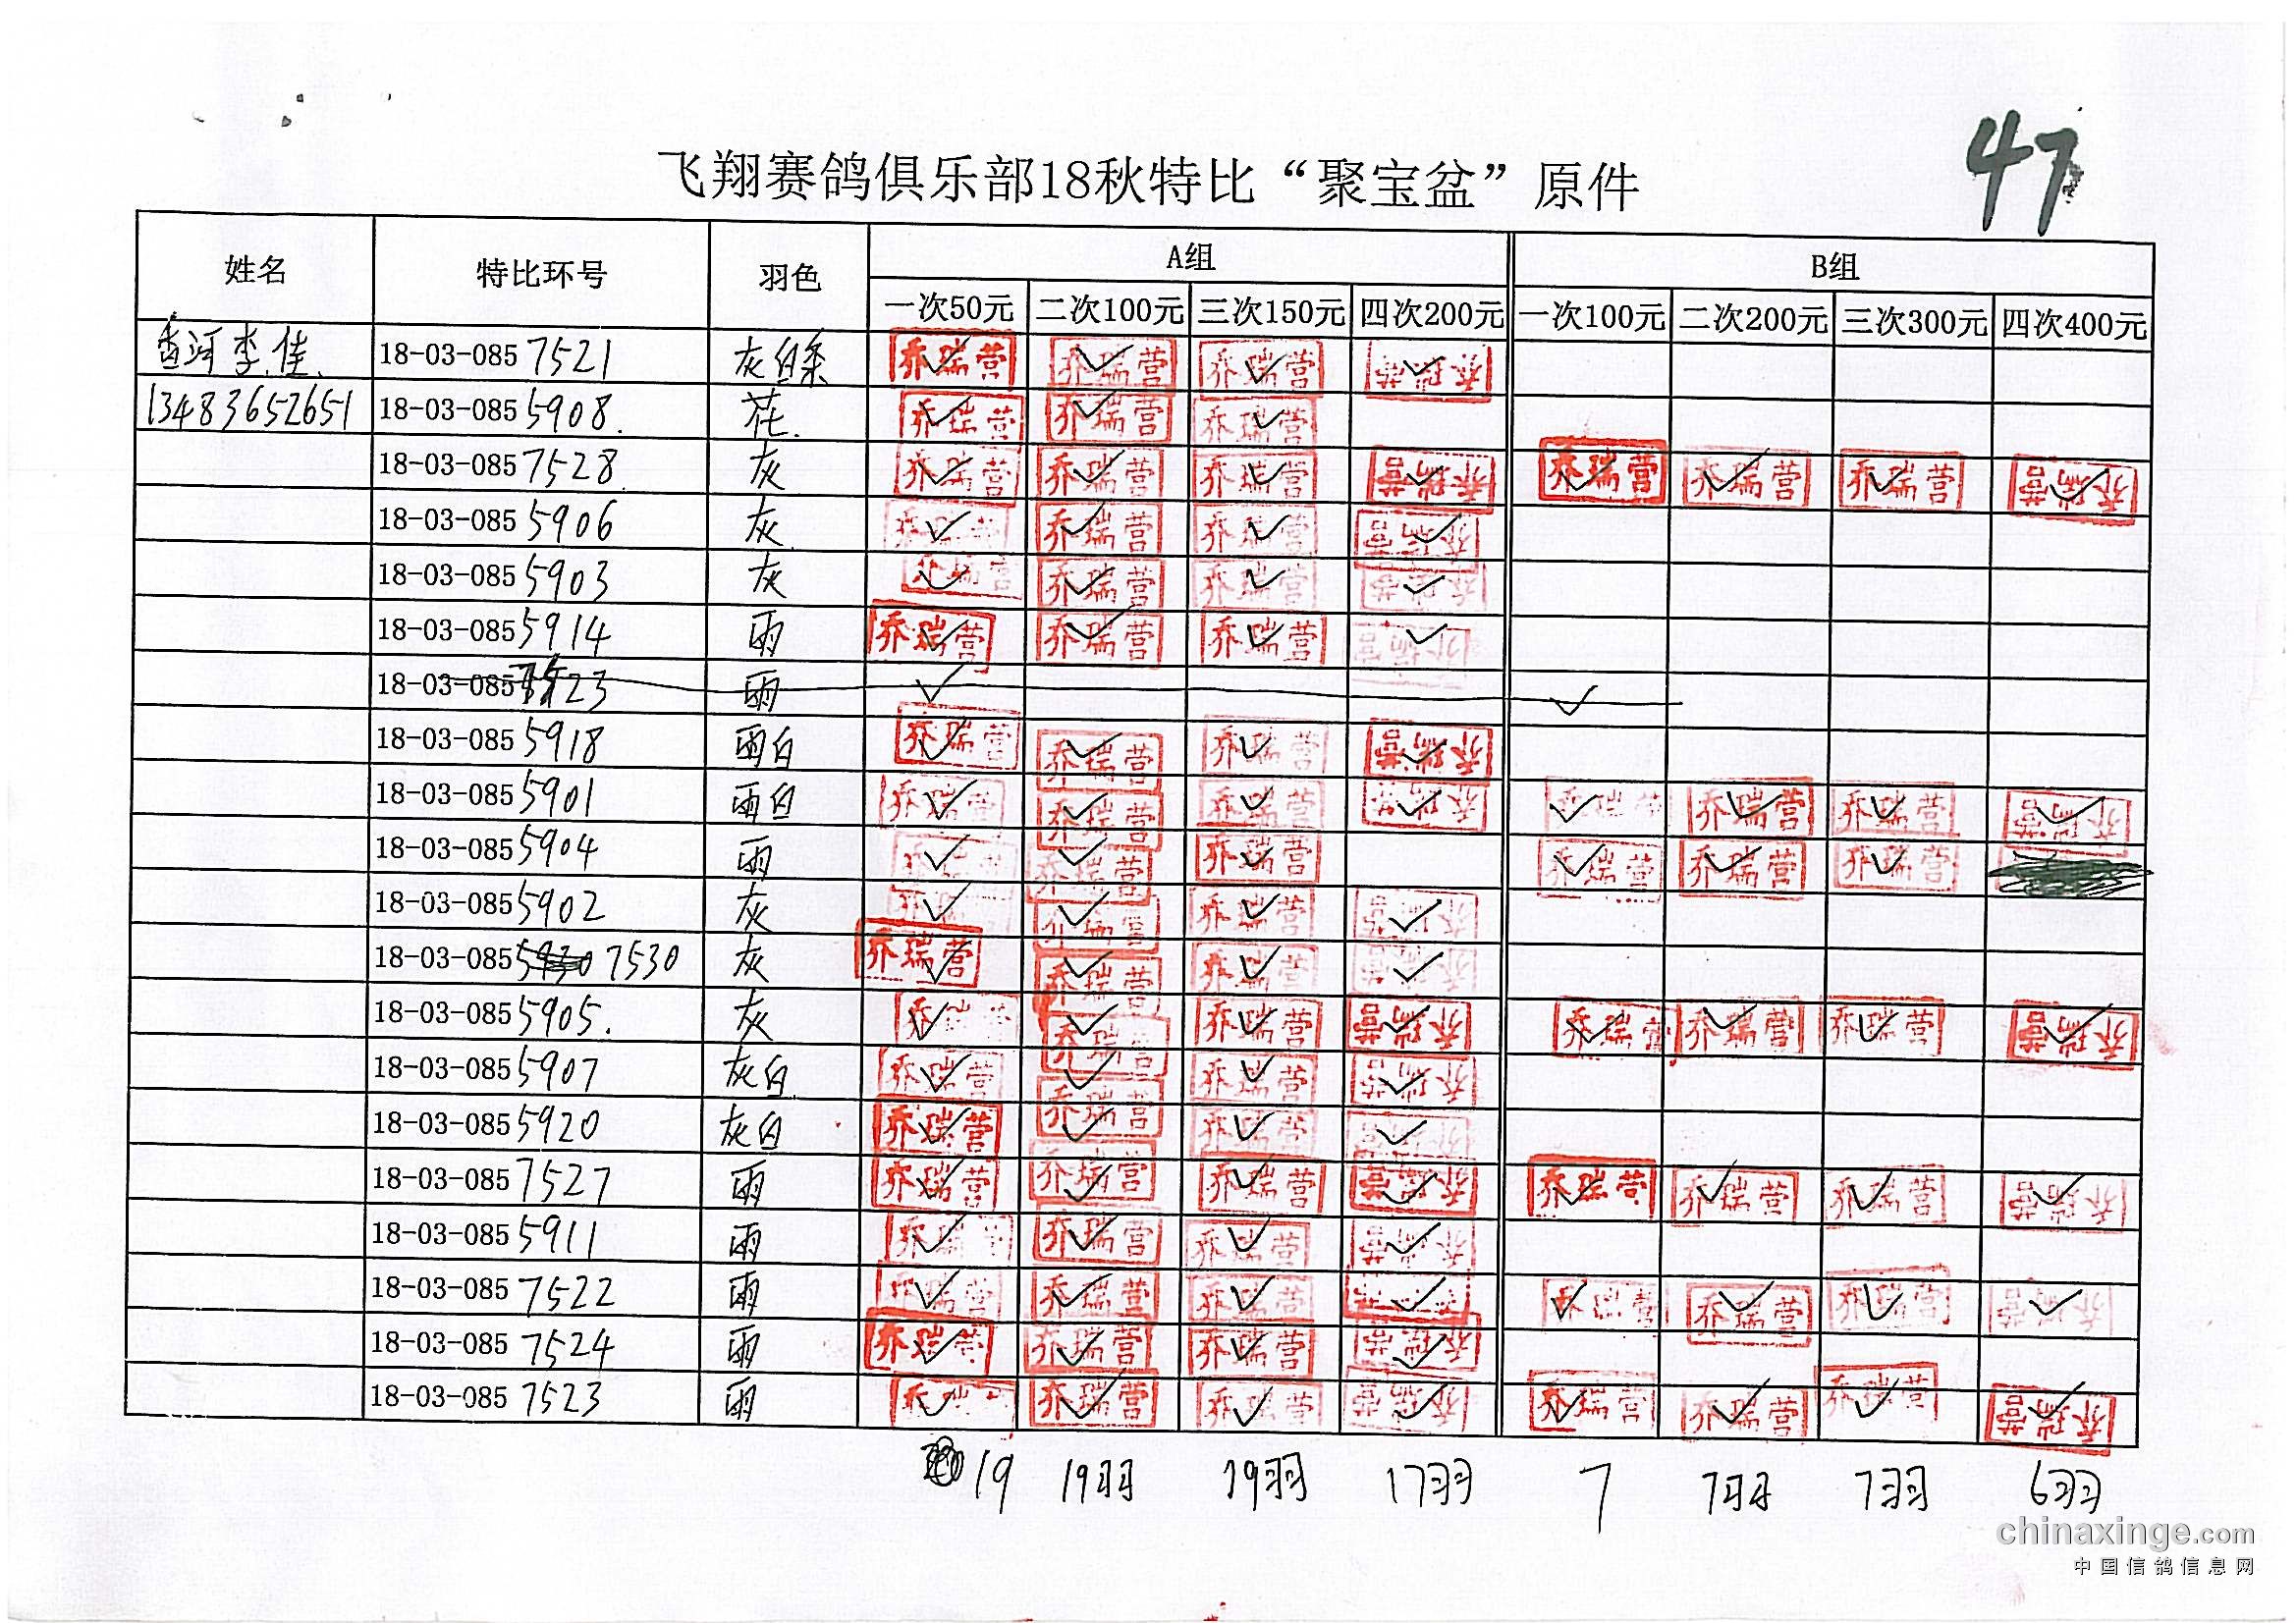 47
飞翔赛鸽俱乐部18秋特比“聚宝盆”原件
姓名 特比环号 羽色 A组 B组
一次50元 二次100元 三次150元 四次200元 一次100元 二次200元 三次300元 四次400元
香河李佳 18-03-085 7521 灰白条 乔瑞营 ✓ 乔瑞营 ✓ 乔瑞营 ✓ 乔瑞营 ✓
13483652651 18-03-085 5908. 花. 乔瑞营 ✓ 乔瑞营 ✓ 乔瑞营 ✓
18-03-085 7528 灰 乔瑞营 ✓ 乔瑞营 ✓ 乔瑞营 ✓ 乔瑞营 ✓ 乔瑞营 ✓ 乔瑞营 ✓ 乔瑞营 ✓ 乔瑞营 ✓
18-03-085 5906 灰 乔瑞营 ✓ 乔瑞营 ✓ 乔瑞营 ✓ 乔瑞营 ✓
18-03-085 5903 灰 乔瑞营 ✓ 乔瑞营 ✓ 乔瑞营 ✓ 乔瑞营 ✓
18-03-085 5914 雨 乔瑞营 ✓ 乔瑞营 ✓ 乔瑞营 ✓ 乔瑞营 ✓
18-03-085 7523 雨 ✓ ✓
18-03-085 5918 雨白 乔瑞营 ✓ 乔瑞营 ✓ 乔瑞营 ✓ 乔瑞营 ✓
18-03-085 5901 雨白 乔瑞营 ✓ 乔瑞营 ✓ 乔瑞营 ✓ 乔瑞营 ✓ 乔瑞营 ✓ 乔瑞营 ✓ 乔瑞营 ✓ 乔瑞营 ✓
18-03-085 5904 雨 乔瑞营 ✓ 乔瑞营 ✓ 乔瑞营 ✓ 乔瑞营 ✓ 乔瑞营 ✓ 乔瑞营 ✓
18-03-085 5902 灰 乔瑞营 ✓ 乔瑞营 ✓ 乔瑞营 ✓ 乔瑞营 ✓
18-03-085 5930 7530 灰 乔瑞营 ✓ 乔瑞营 ✓ 乔瑞营 ✓ 乔瑞营 ✓
18-03-085 5905. 灰 乔瑞营 ✓ 乔瑞营 ✓ 乔瑞营 ✓ 乔瑞营 ✓ 乔瑞营 ✓ 乔瑞营 ✓ 乔瑞营 ✓ 乔瑞营 ✓
18-03-085 5907 灰白 乔瑞营 ✓ 乔瑞营 ✓ 乔瑞营 ✓ 乔瑞营 ✓
18-03-085 5920 灰白 乔瑞营 ✓ 乔瑞营 ✓ 乔瑞营 ✓ 乔瑞营 ✓
18-03-085 7527 雨 乔瑞营 ✓ 乔瑞营 ✓ 乔瑞营 ✓ 乔瑞营 ✓ 乔瑞营 ✓ 乔瑞营 ✓ 乔瑞营 ✓ 乔瑞营 ✓
18-03-085 5911 雨 乔瑞营 ✓ 乔瑞营 ✓ 乔瑞营 ✓ 乔瑞营 ✓
18-03-085 7522 雨 乔瑞营 ✓ 乔瑞营 ✓ 乔瑞营 ✓ 乔瑞营 ✓ 乔瑞营 ✓ 乔瑞营 ✓ 乔瑞营 ✓ 乔瑞营 ✓
18-03-085 7524 雨 乔瑞营 ✓ 乔瑞营 ✓ 乔瑞营 ✓ 乔瑞营 ✓
18-03-085 7523 雨 乔瑞营 ✓ 乔瑞营 ✓ 乔瑞营 ✓ 乔瑞营 ✓ 乔瑞营 ✓ 乔瑞营 ✓ 乔瑞营 ✓ 乔瑞营 ✓
19 19羽 19羽 17羽 7 7羽 7羽 6羽
chinaxinge.com
中国信鸽信息网